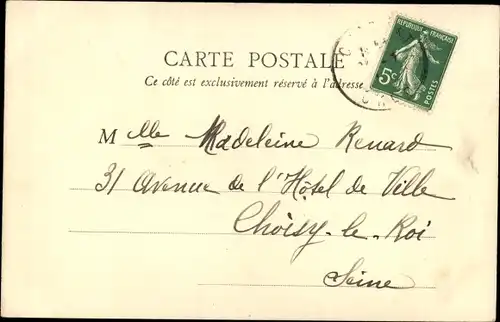 RÉPUBLIQUE FRANÇAISE
5c
POSTES
CARTE POSTALE
Ce côté est exclusivement réservé à l'adresse
Mlle Madeleine Renard
31 Avenue de l'Hôtel de Ville
Choisy-le-Roi
Seine